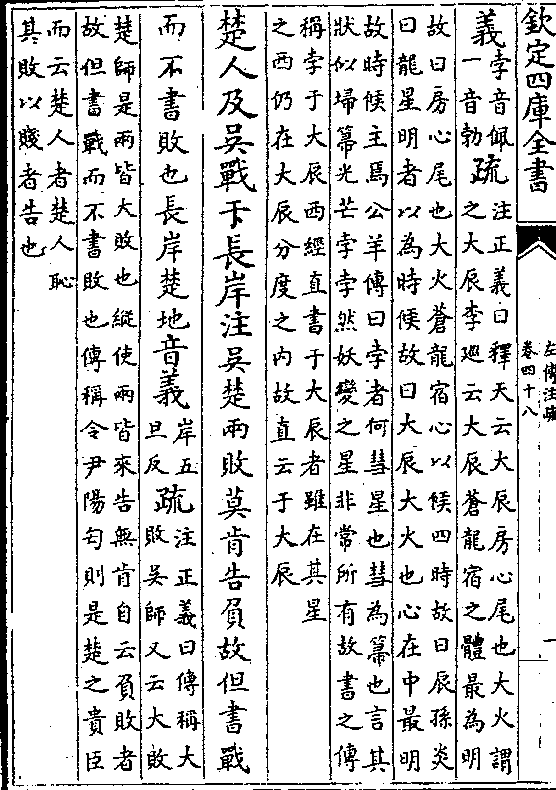 欽定四庫全書
左傳注疏
卷四十八
一
義孛音佩
一音勃疏注正義曰釋天云大辰房心尾也大火謂
之大辰李廵云大辰蒼龍宿之體最為明
故曰房心尾也大火蒼龍宿心以候四時故曰辰孫炎
曰龍星明者以為時候故曰大辰大火也心在中最明
故時候主焉公羊傳曰孛者何彗星也彗為箒也言其
狀似埽箒光芒孛孛然妖變之星非常所有故書之傳
稱孛于大辰西經直書于大辰者雖在其星
之西仍在大辰分度之内故直云于大辰
楚人及吳戰于長岸注吳楚兩敗莫肯告負故但書戰
而不書敗也長岸楚地音義岸五
旦反疏注正義曰傳稱大
敗吳師又云大敗
楚師是兩皆大敗也縱使兩皆來告無肯自云負敗者
故但書戰而不書敗也傳稱令尹陽匄則是楚之貴臣
而云楚人者楚人恥
其敗以賤者告也